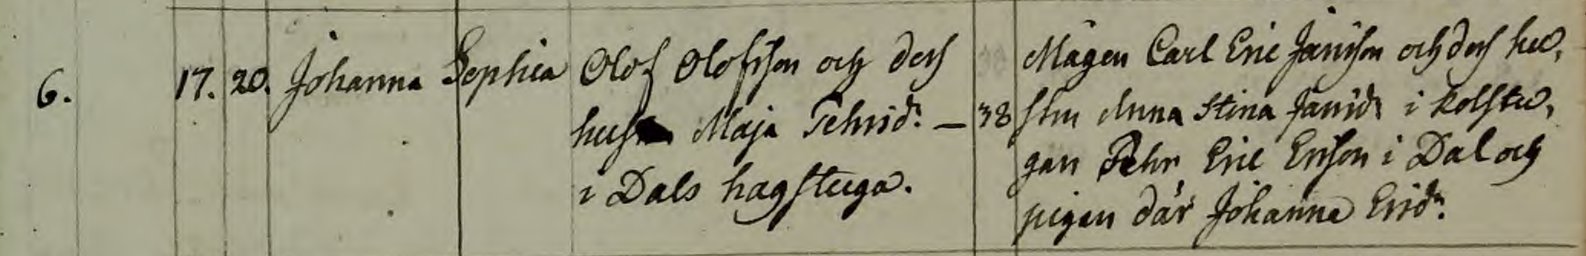 6. 17. 20. Johanna Sophia Olof Olofsson och dess Mågen Carl Eric Jansson och dess hu,
hustru Maja Pehrsd:r — 38 stru Anna Stina Jansd:r i Kolstu,
gan Pehr Eric Ersson i Dal och
i Dals hagstuga.
pigan där Johanna Ersd:r